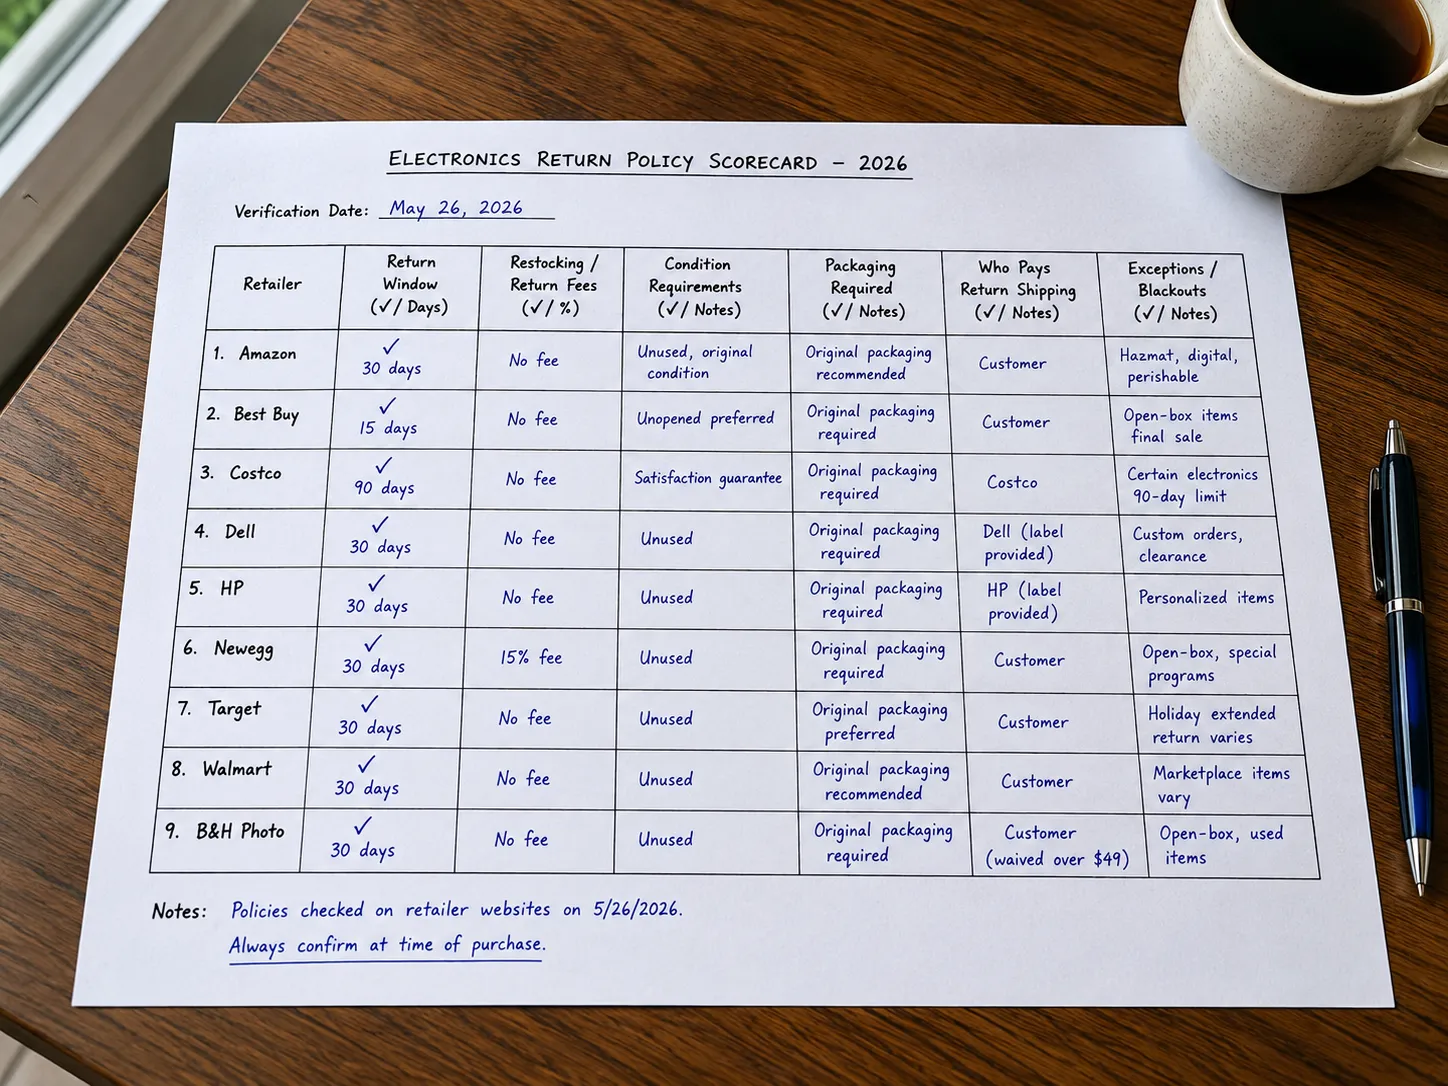 ELECTRONICS RETURN POLICY SCORECARD – 2026
Verification Date: May 26, 2026
Retailer
Return
Window
(✓/ Days)
Restocking /
Return Fees
(✓/ %)
Condition
Requirements
(✓/ Notes)
Packaging
Required
(✓/ Notes)
Who Pays
Return Shipping
(✓/ Notes)
Exceptions /
Blackouts
(✓/ Notes)
1. Amazon
✓
30 days
No fee
Unused, original
condition
Original packaging
recommended
Customer
Hazmat, digital,
perishable
2. Best Buy
✓
15 days
No fee
Unopened preferred
Original packaging
required
Customer
Open-box items
final sale
3. Costco
✓
90 days
No fee
Satisfaction guarantee
Original packaging
required
Costco
Certain electronics
90-day limit
4. Dell
✓
30 days
No fee
Unused
Original packaging
required
Dell (label
provided)
Custom orders,
clearance
5. HP
✓
30 days
No fee
Unused
Original packaging
required
HP (label
provided)
Personalized items
6. Newegg
✓
30 days
15% fee
Unused
Original packaging
required
Customer
Open-box, special
programs
7. Target
✓
30 days
No fee
Unused
Original packaging
preferred
Customer
Holiday extended
return varies
8. Walmart
✓
30 days
No fee
Unused
Original packaging
recommended
Customer
Marketplace items
vary
9. B&H Photo
✓
30 days
No fee
Unused
Original packaging
required
Customer
(waived over $49)
Open-box, used
items
Notes: Policies checked on retailer websites on 5/26/2026.
Always confirm at time of purchase.